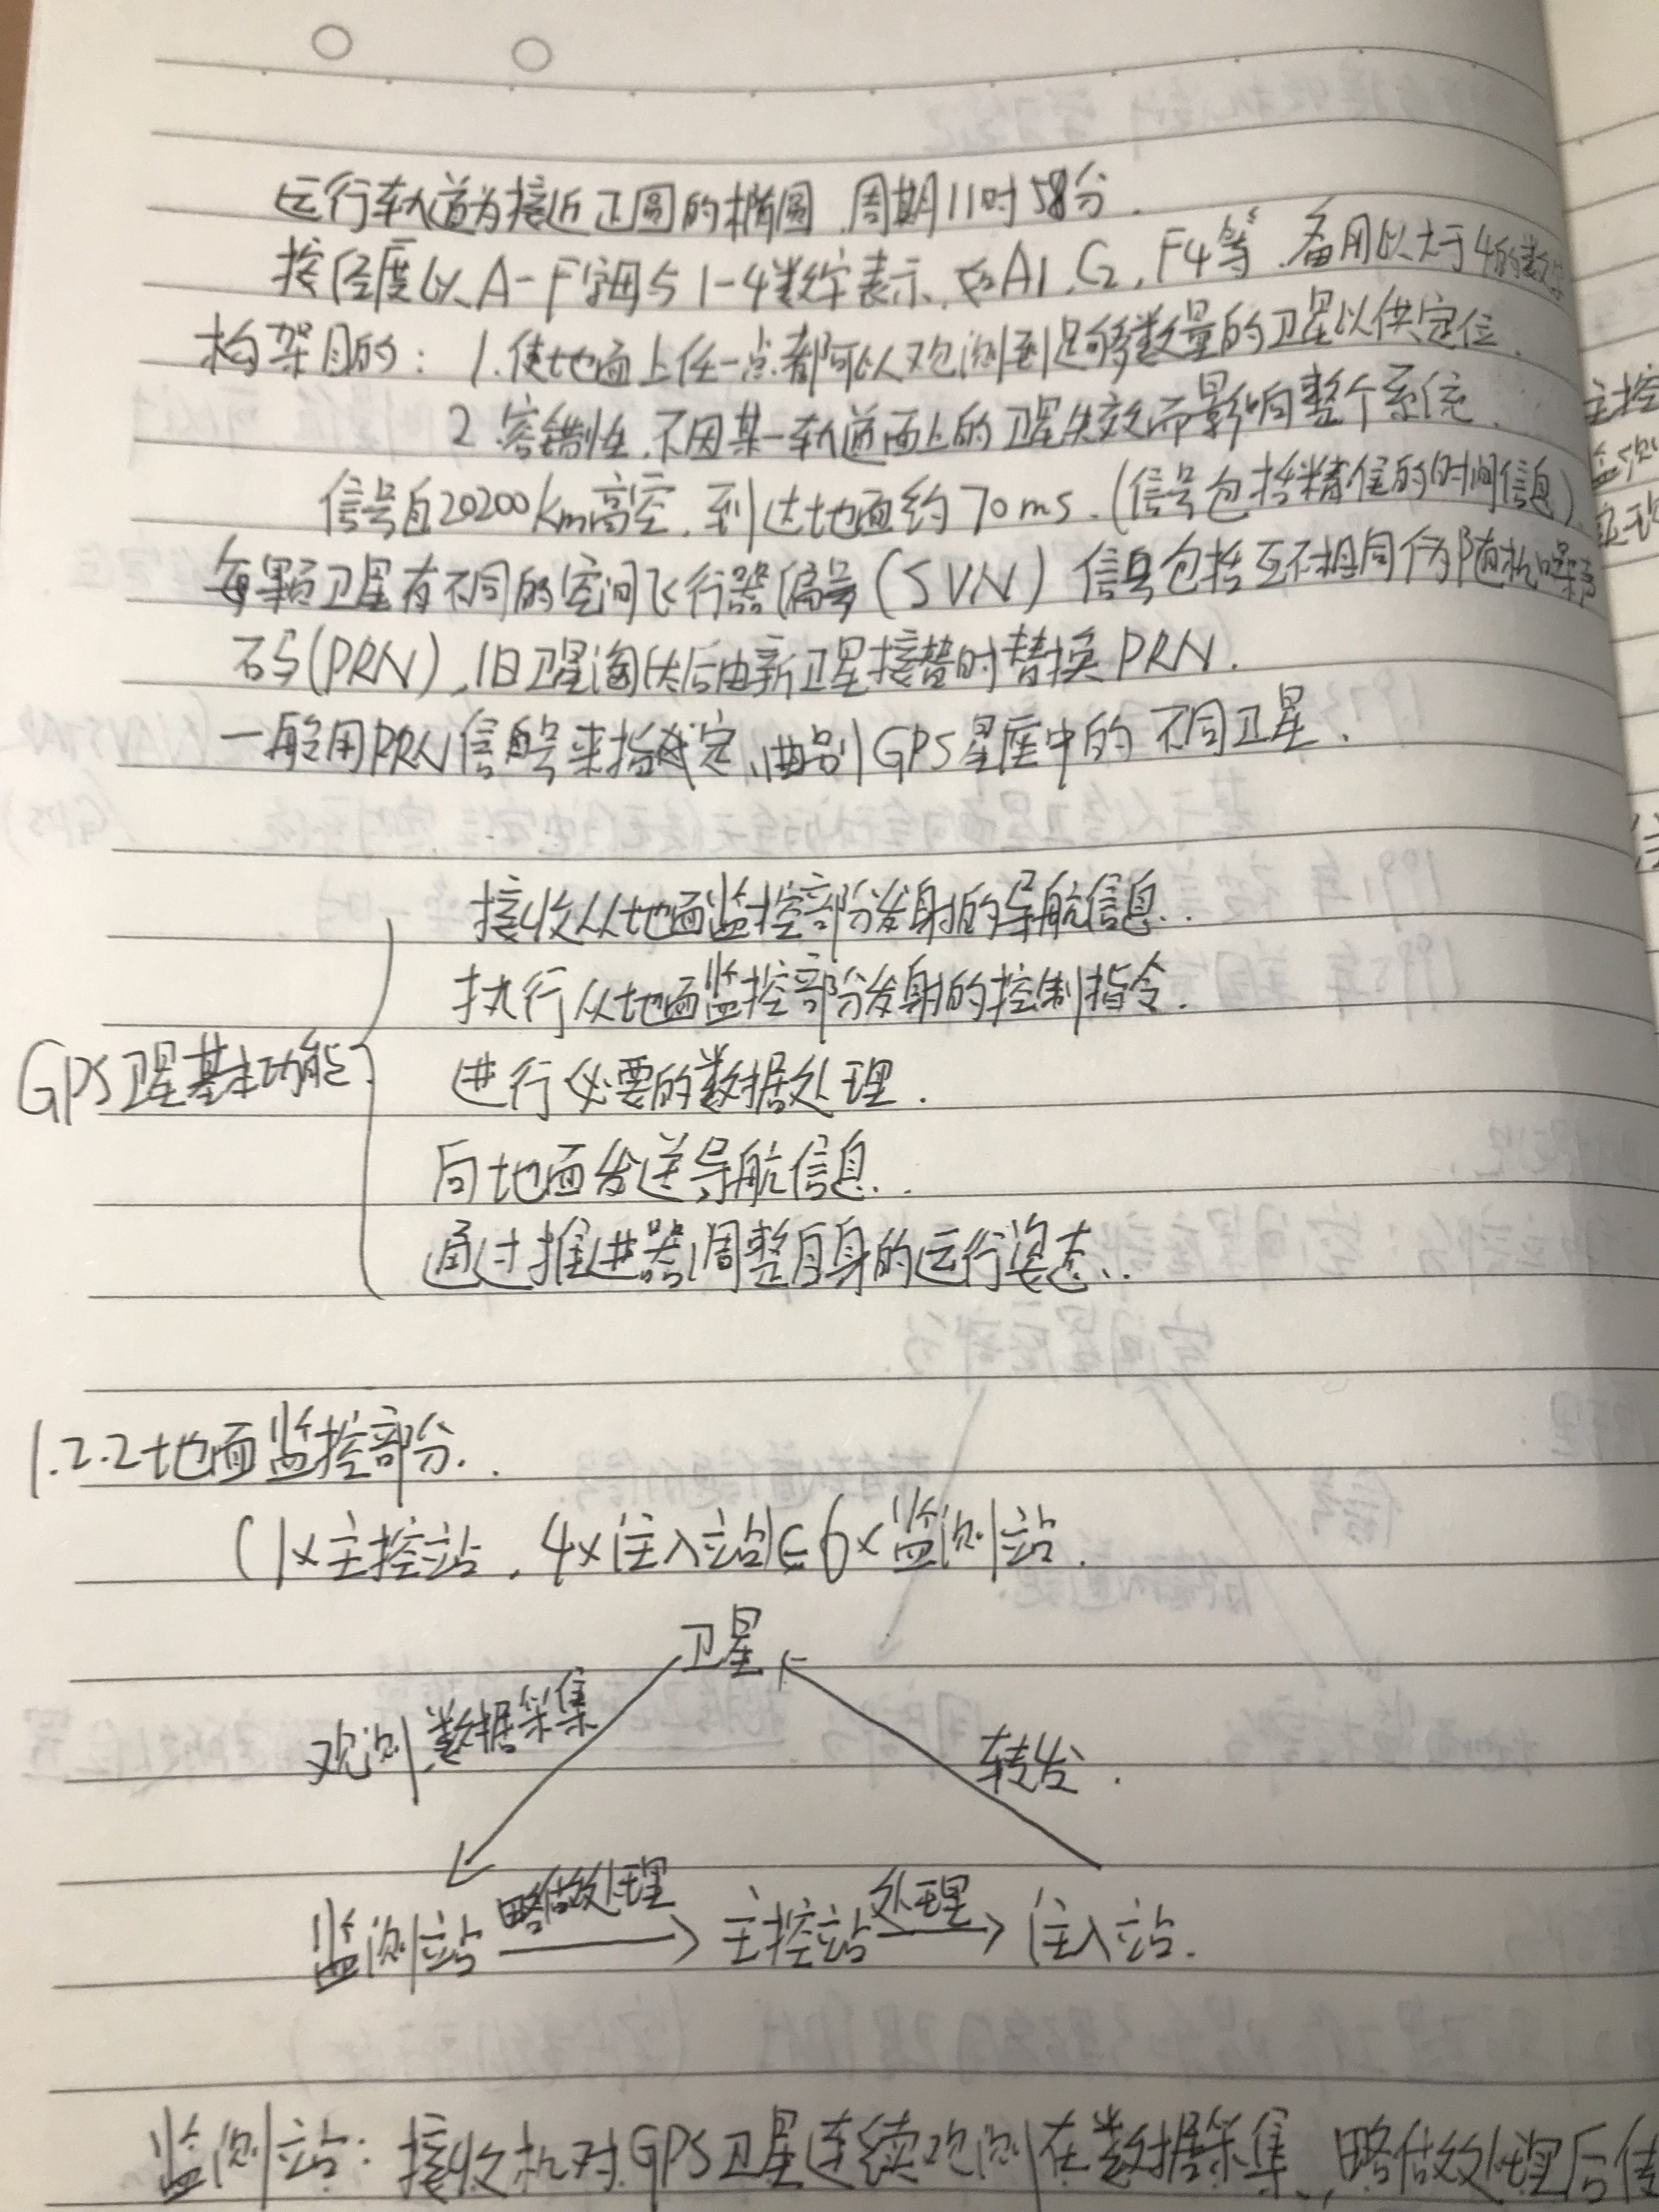 运行轨道为接近正圆的椭圆.周期11时58分.
按经度以A-F字母与1-4数字表示,如A1,C2,F4等.备用以大于4的数字
构架目的:1.使地面上任一点都可以观测到足够数量的卫星以供定位.
2.容错性,不因某一轨道面上的卫星失效而影响整个系统.
信号自20200km高空,到达地面约70ms.(信号包括精准的时间信息)
每颗卫星有不同的空间飞行器编号(SVN)信息包括互不相同伪随机噪音
码(PRN),旧卫星淘汰后由新卫星接替时替换PRN.
一般用PRN信号来指定、区别GPS星座中的不同卫星.
GPS卫星基本功能
接收从地面监控部分发射的导航信息..
执行从地面监控部分发射的控制指令.
进行必要的数据处理.
向地面发送导航信息..
通过推进器调整自身的运行姿态..
1.2.2地面监控部分..
(1×主控站,4×注入站)∈6×监测站.
卫星
观测,数据采集
转发.
略做处理
处理
监测站
主控站
注入站.
监测站:接收机对GPS卫星连续观测在数据采集,略做处理后传
主控
监测